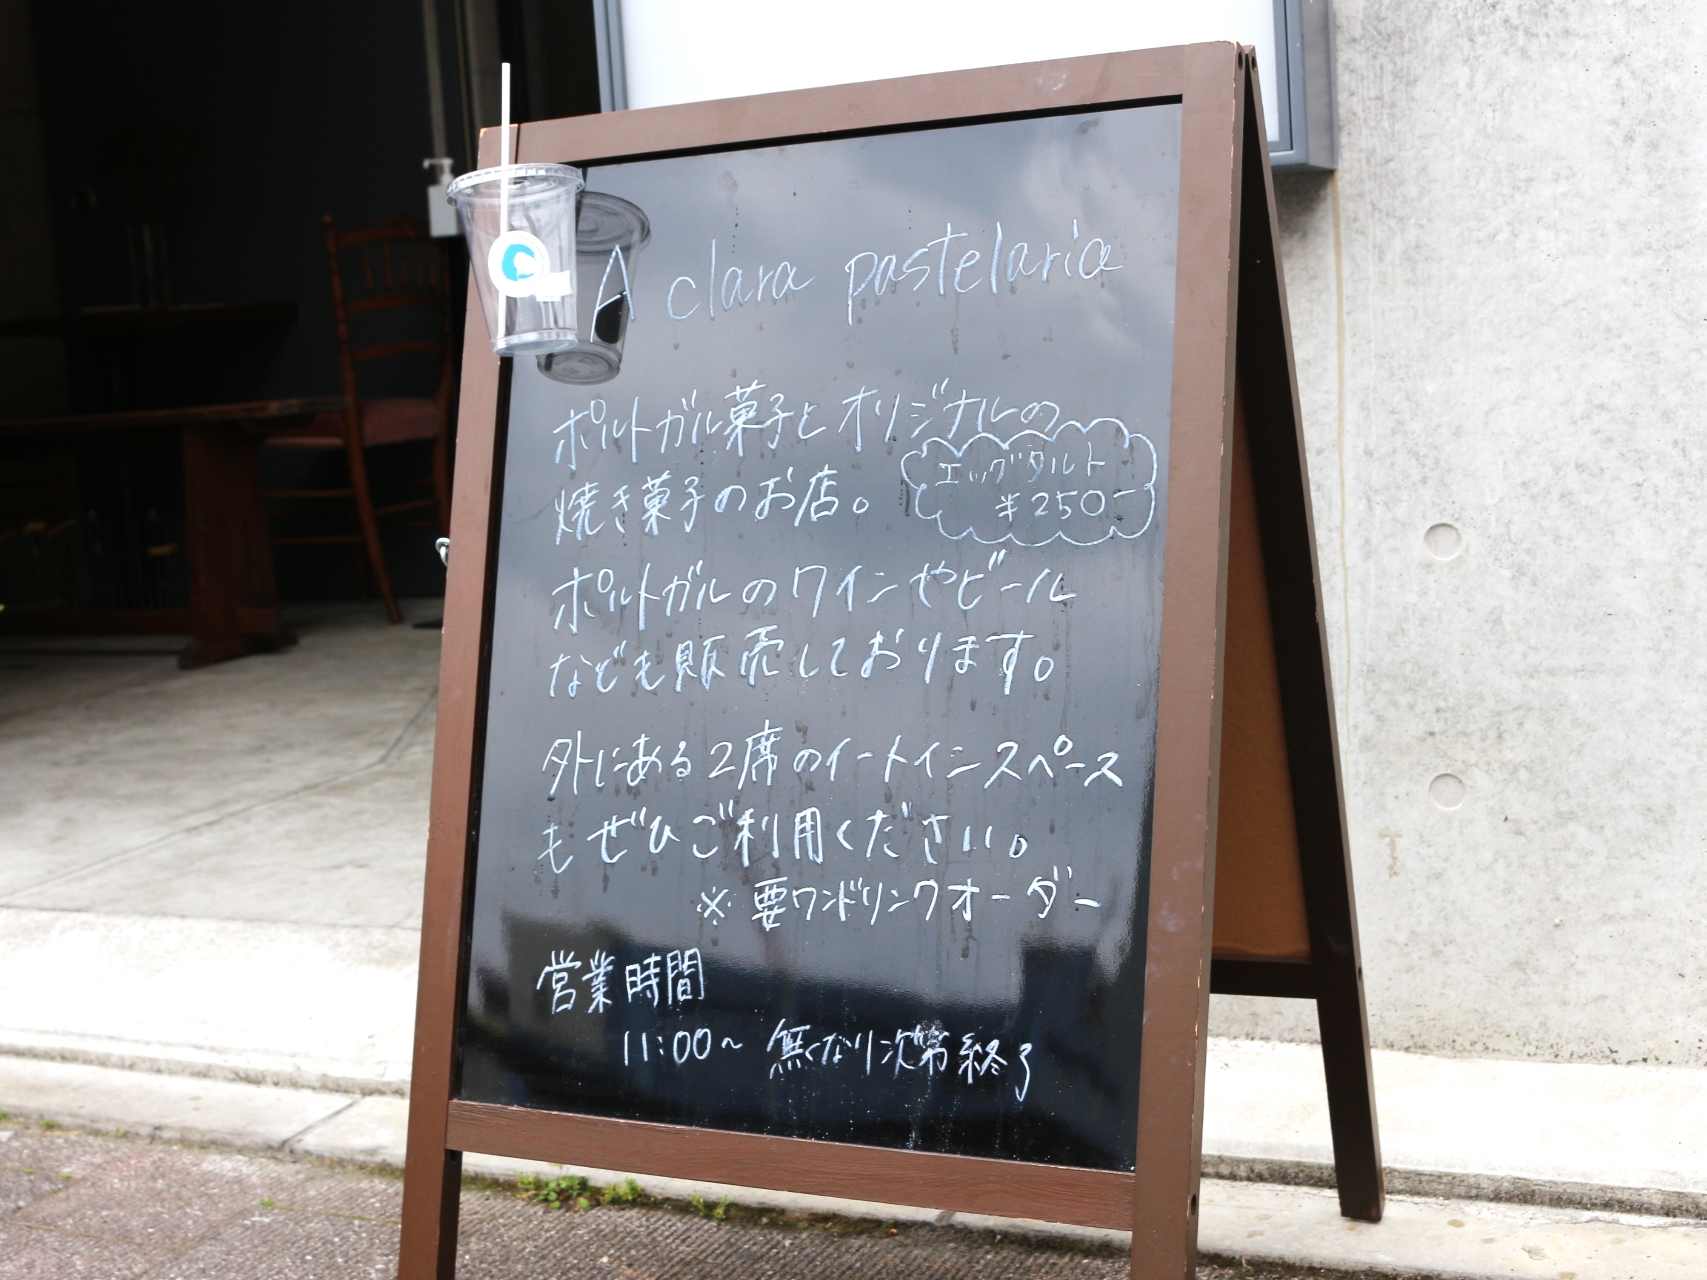 A clara pastelaria
ポルトガル菓子とオリジナルの
焼き菓子のお店。
エッグタルト
¥250-
ポルトガルのワインやビール
なども販売しております。
外にある2席のイートインスペース
もぜひご利用ください。
※要ワンドリンクオーダー
営業時間
11:00~ 無くなり次第終了